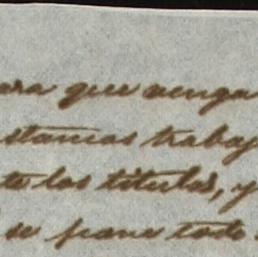 ara que venga
stancias trabaj
te los titulos, y
se pone todo